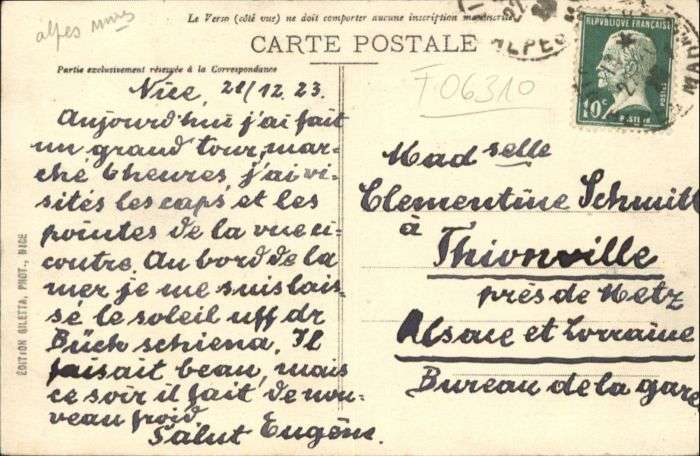 alpes mmes
Le Verso (côté vue) ne doit comporter aucune inscription manuscrite
CARTE POSTALE
Partie exclusivement réservée à la Correspondance
F06310
ALPES
RÉPUBLIQUE FRANÇAISE
10c
POSTES
PASTEUR
Nice, 28/12. 23.
Aujourd'hui j'ai fait
un grand tour, mar-
ché 6 heures, j'ai vi-
sités les caps et les
pointes de la vue ci-
contre. Au bord de la
mer je me suis lais-
sé le soleil uff dr
Büch schiena. Il
faisait beau, mais
ce soir il fait de nou-
veau froid
Salut Eugène.
Mad selle
Clementine Schmitt
à
Thionville
près de Metz
Alsace et Lorraine
Bureau de la gare
ÉDITION GILETTA, PHOT., NICE